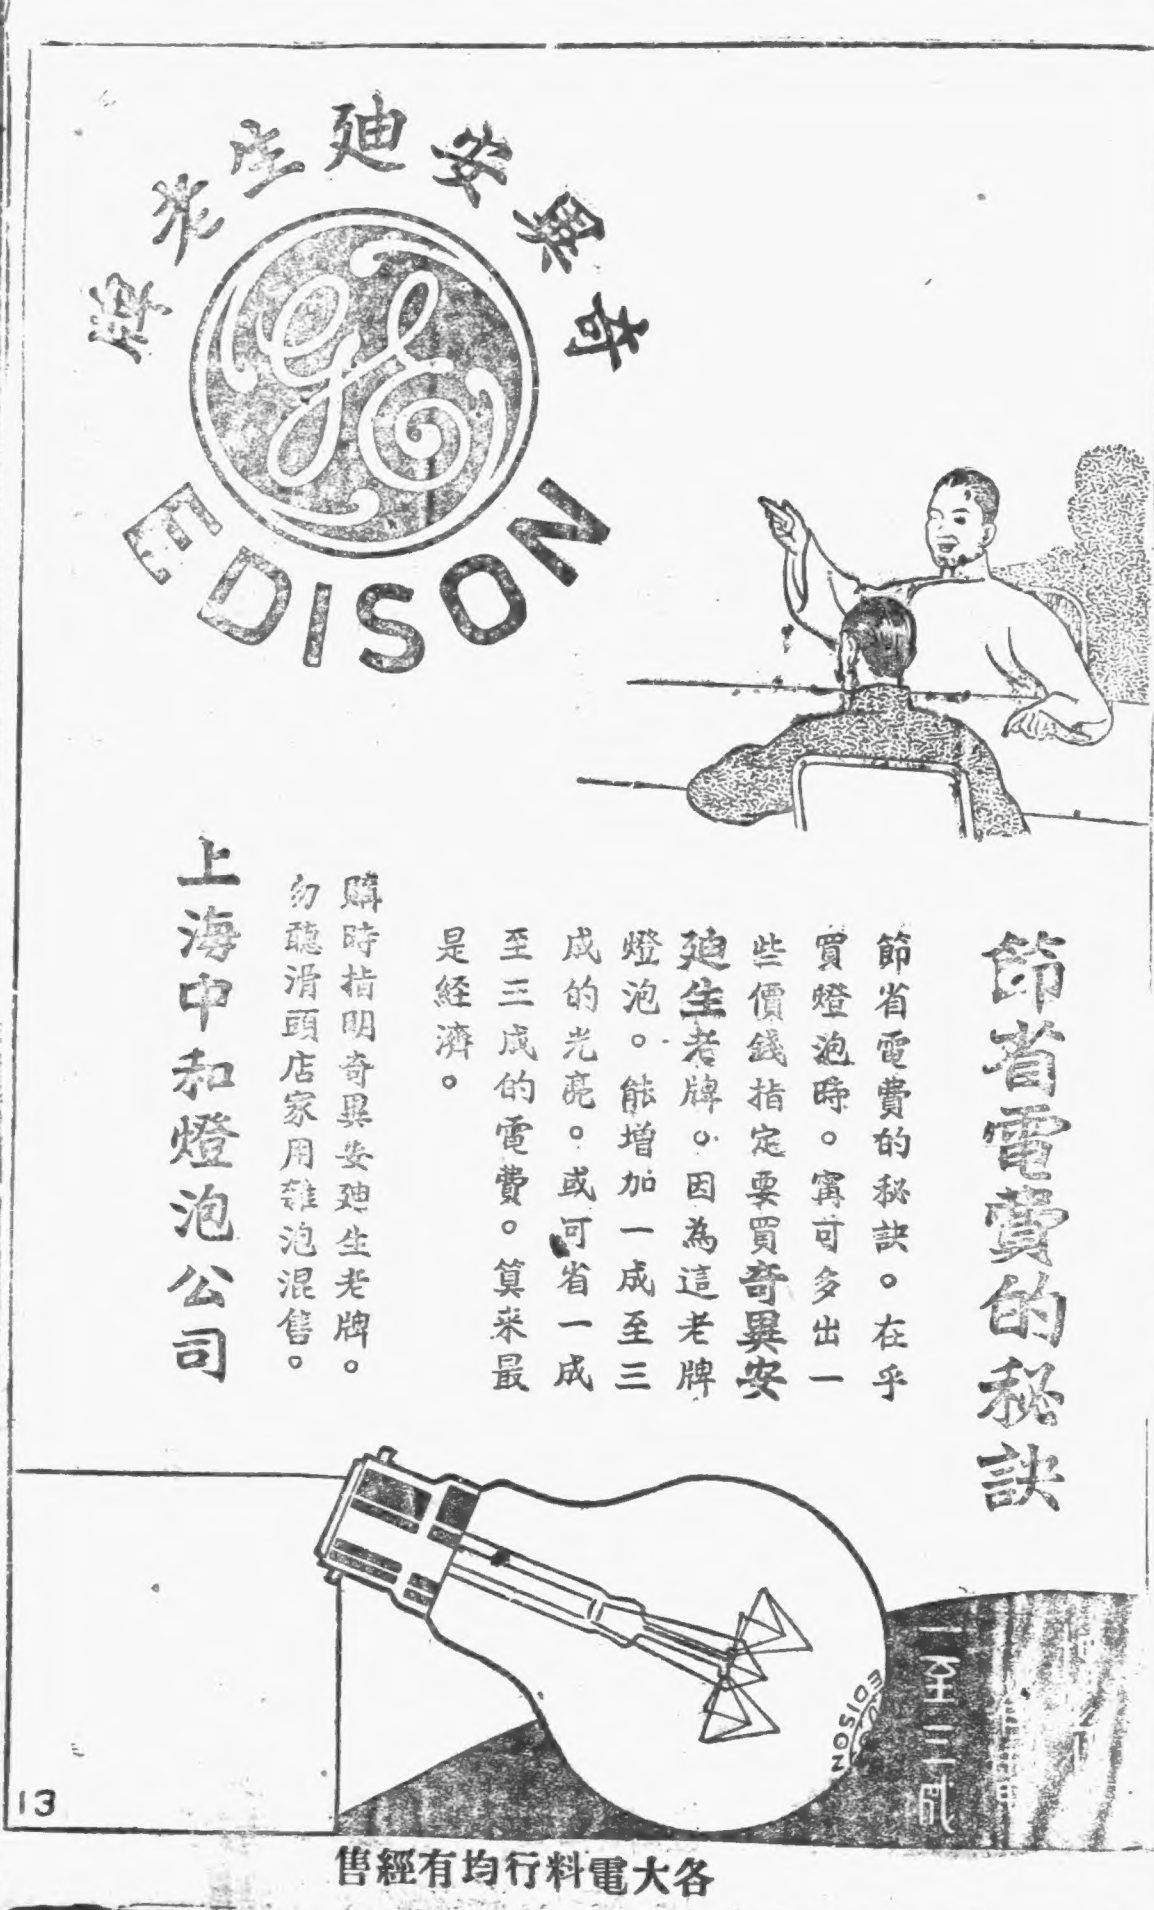 奇異安廸生老牌
GE
EDISON
節省電費的秘訣
節省電費的秘訣。在乎
買燈泡時。寗可多出一
些價錢指定要買奇異安
廸生老牌。因為這老牌
燈泡。能增加一成至三
成的光亮。或可省一成
至三成的電費。算來最
是經濟。
購時指明奇異安廸生老牌。
勿聽滑頭店家用雜泡混售。
上海中和燈泡公司
EDISON
一至三成
13
各大電料行均有經售